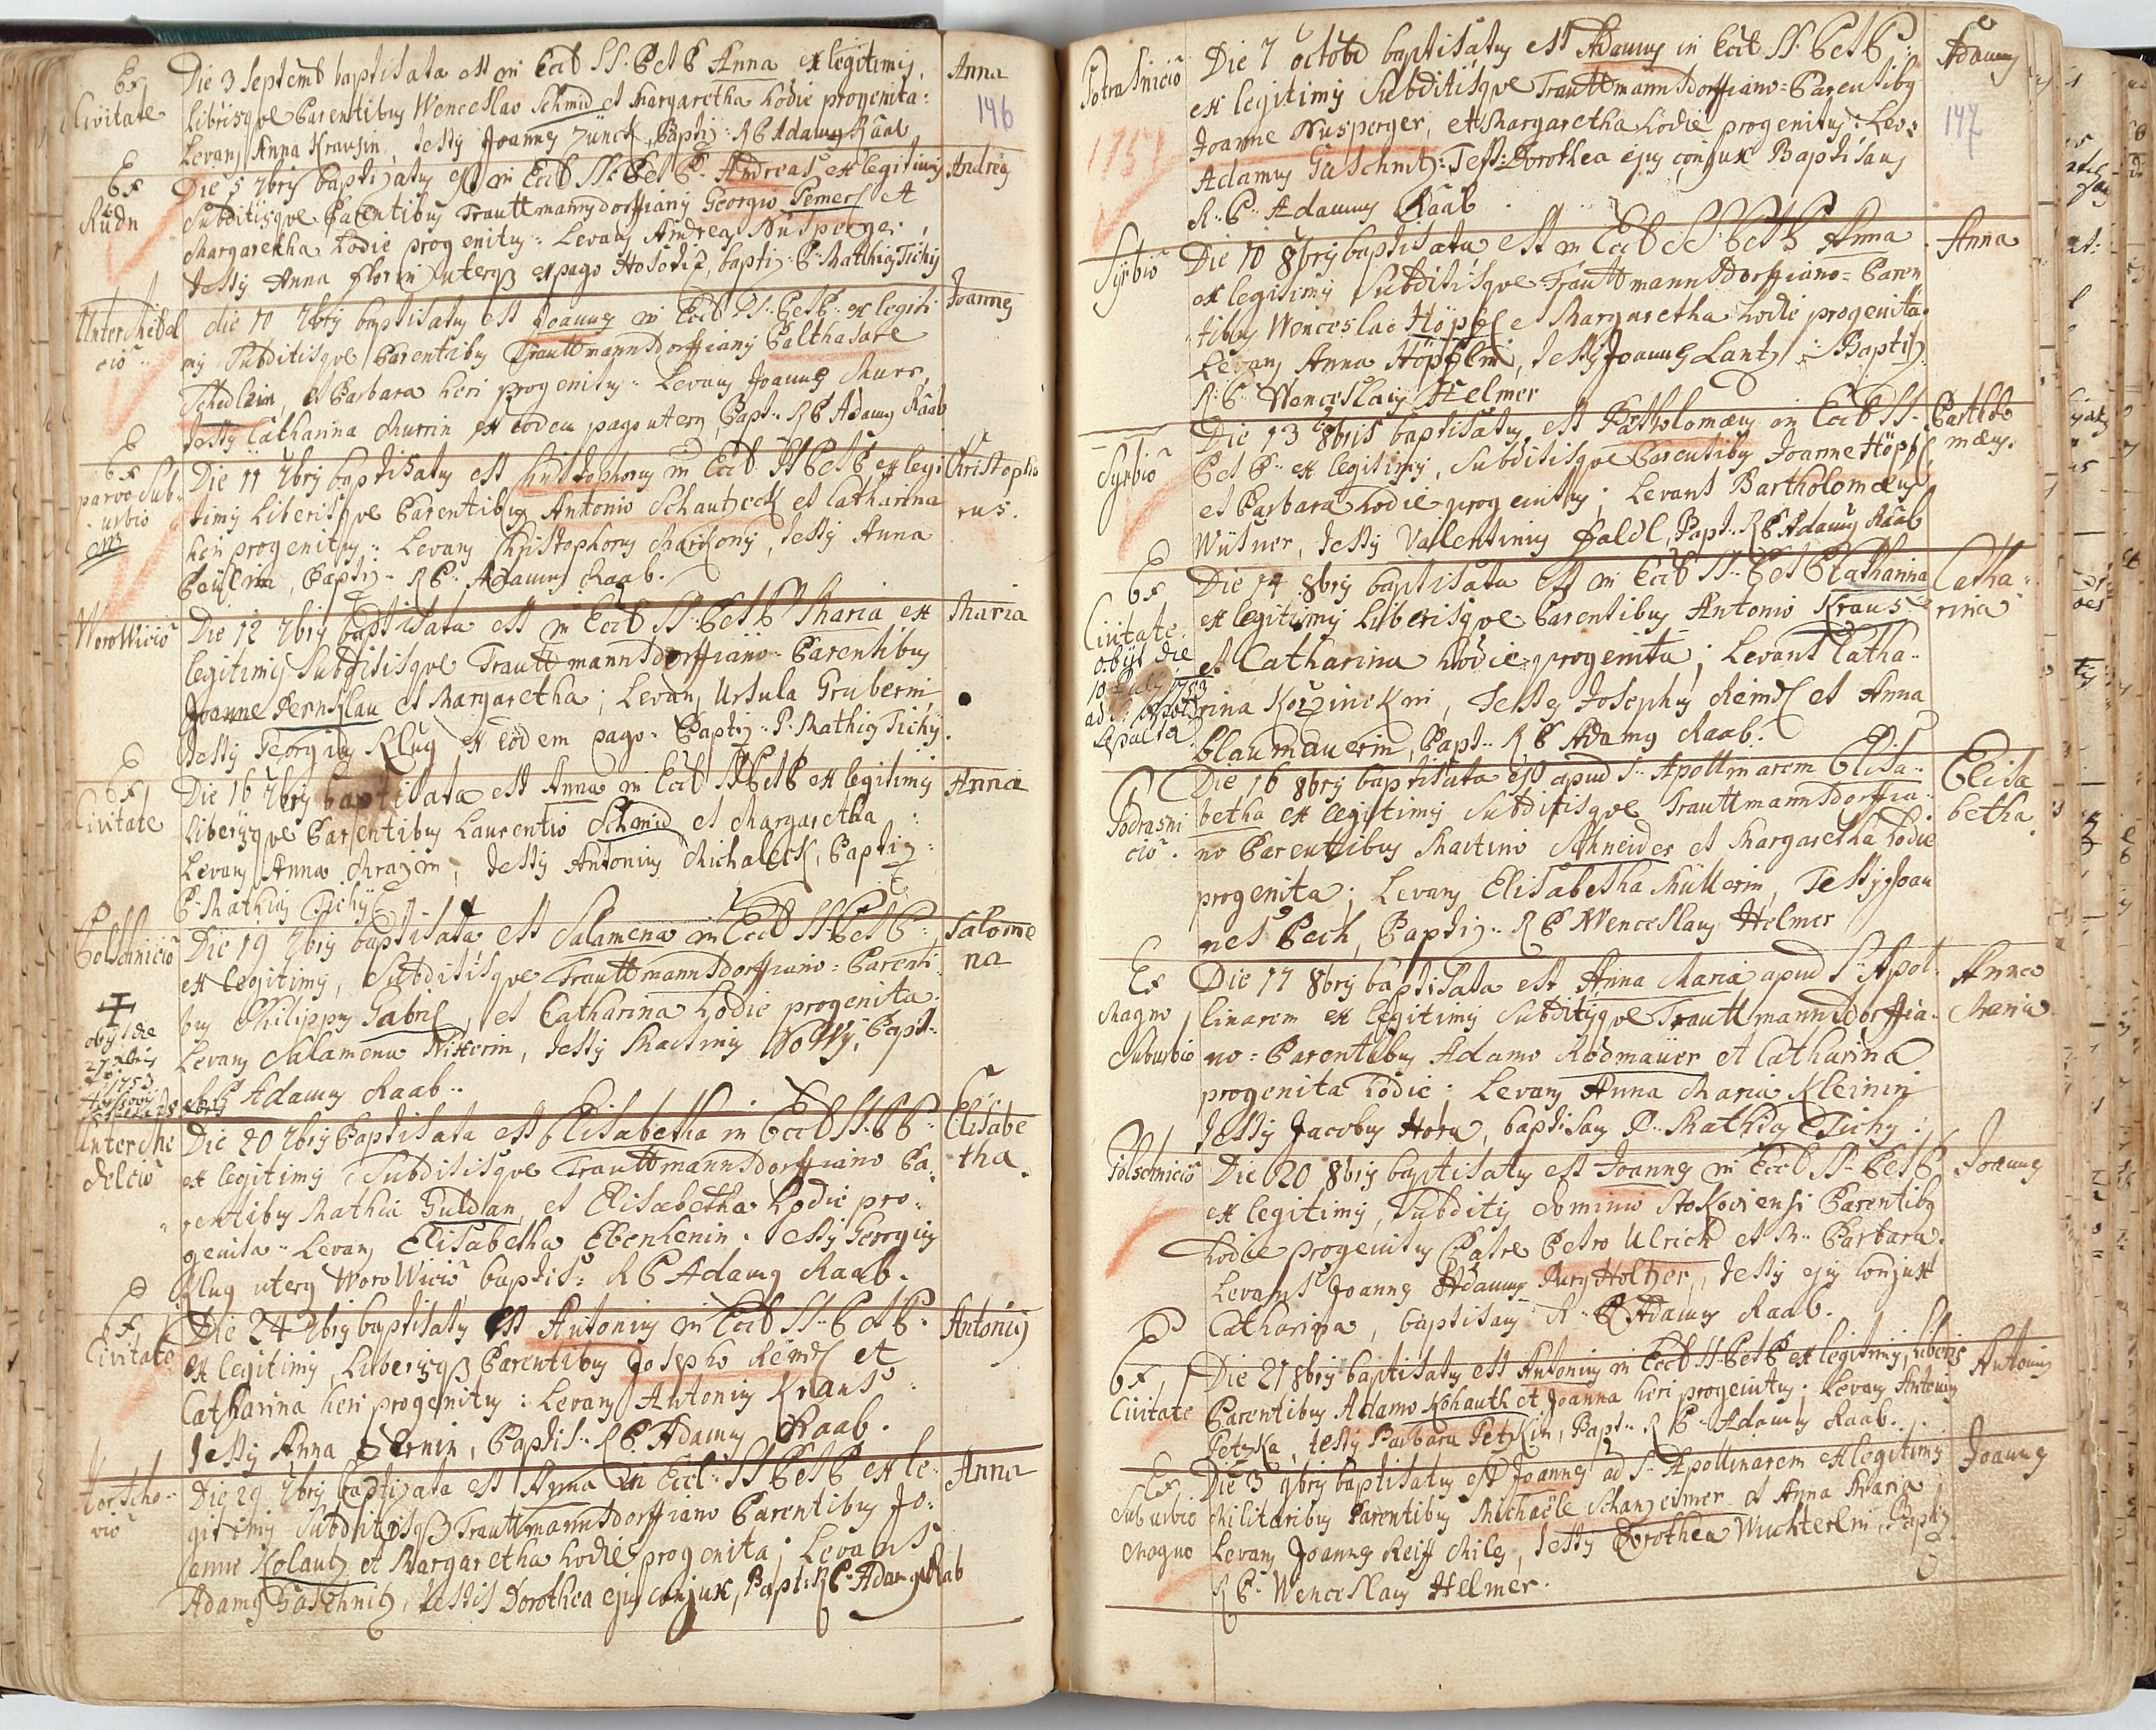 Ex
Civitate
Die 3 Septemb baptisata est in Eccl SS. P et P Anna ex legitimis,
Anna
146
Liberisqve Parentibus Wenceslao Schmid et Margaretha hodie progenita:
Levans Anna Krausin, testis Joannes Zünck, Baptiz: R P Adamus Raab
Ex
Rudn
Die 5 7bris baptizatus est in Eccl SS. P et P. Andreas ex legitimis
Andreas
Subditisqve Parentibus Trauttmannsdorffianis Georgio Pemerl et
Margaretha hodie progenitus: Levans Andreas Nusperger,
testis Anna uterq ex pago baptiz: P. Mathias Tichy
Unterschedl
cio
die 10 7bris baptisatus est Joannes in Eccl SS. P et P. ex legiti
Joannes
mis Subditisqve Parentibus Trauttmannsdorffianis Balthasare
Schedlein, et Barbara heri progenitus: Levans Joannes Murr,
testis Catharina Murrin ex eodem pago uterq, Bapt: R P Adamus Raab
Ex
parvo Sub
urbio
Die 11 7bris baptisatus est Christophorus in Eccl SS P et P ex legi
Christopho
rus.
timis Liberisqve Parentibus Antonio Schautzeck et Catharina
heri progenitus: Levans Christophorus testis Anna
Baptiz: R P. Adamus Raab.
WoroWicio
Die 12 7bris baptisata est in Eccl SS. P et P Maria ex
Maria
legitimis Subditisqve Trauttmannsdorffiano Parentibus
Joanne Pernklau et Margaretha; Levans Ursula Gruberin,
testis Georgius Klug ex eodem pago. Baptiz: P. Mathias Tichy.
Ex
Civitate
Die 16 7bris baptisata est Anna in Eccl SS P et P ex legitimis
Anna
Liberisqve Parentibus Laurentio Schmid et Margaretha:
Levans Anna testis Antonius Michaleck, Baptiz:
P. Mathias Tichy
Polschnicio
Die 19 7bris baptisata est Salamena in Eccl SS. P et P:
Salome
na
ex legitimis, Subditisqve Trauttmannsdorffiano Parenti
bus Philippo Gabriel, et Catharina hodie progenita.
obijt die
1753
Levans Salamena Ritterin, testis Martinus Bapt:
R P Adamus Raab.
Untersche
delcio
Die 20 7bris Baptisata est Elisabetha in Eccl SS. P P.
Elisabe
tha.
ex legitimis Subditisqve Trauttmannsdorffiano Pa
rentibus Mathia Guldan, et Elisabetha hodie pro
genita. Levans Elisabetha testis Georgius
Klug uterq WoroWicio baptis: R P Adamus Raab.
Ex
Civitate
Die 24 7bris baptisatus est Antonius in Eccl SS. P et P.
Antonius
ex legitimis, Liberisq Parentibus Josepho Reindl et
Catharina heri progenitus: Levans Antonius Kraus:
testis Anna Baptis: R P. Adamus Raab.
Die 29 7bris baptizata est Anna in Eccl. SS P et P ex le
Anna
gitimis Subditisq Trauttmannsdorffiano Parentibus Jo
anne Kolautz et Margaretha hodie progenita; Levans
Adamus testis Dorothea ejus conjux, Bapt: R P Adamus Raab
Potrasnicio
Die 7 octobr baptisatus est Adamus in Eccl SS. P et P.
Adamus
147
ex legitimis Subditisqve Trauttmannsdorffiano Parentibus
Joanne Nusperger, et Margaretha hodie progenitus: Lev:
Adamus Test: Dorothea ejus conjux Baptisans
R. P. Adamus Raab
Syrbio
Die 10 8bris baptisata est in Eccl SS. P et P Anna
Anna
ex legitimis Subditisqve Trauttmannsdorffiano Paren
tibus Wenceslao Höpfl et Margaretha hodie progenita.
Levans Anna Höpflin, testis Joannes Lantz: Baptiz:
R: P. Wenceslaus Helmer
Syrbio
Die 13 8bris baptisatus est Bartholomæus in Eccl SS.
Bartholo
mæus.
P et P. ex legitimis, Subditisqve Parentibus Joanne Höpfl
et Barbara hodie progenitus; Levans Bartholomæus
Wüsner, testis Vallentinus Bapt: R P Adamus Raab
Ex
Civitate.
obijt die
Die 14 8bris baptisata est in Eccl SS. P et P Catharina
Catha
rina
ex legitimis Liberisqve Parentibus Antonio Kraus
et Catharina hodie progenita; Levans Catha
rina Testes Josephus Reindl et Anna
Blaumauerin, Bapt: R P Adamus Raab.
Podrasni
cio.
Die 16 8bris baptisata est apud S. Apollinarem Elisa
Elisa
betha
betha ex legitimis Subditisqve Trauttmannsdorffia
no Parentibus Martino Schneider et Margaretha hodie
progenita; Levans Elisabetha Müllerin, Testis Joan
nes Pech, Baptiz: R P Wenceslaus Helmer
Ex
Magno
Suburbio
Die 17 8bris baptisata est Anna Maria apud S. Apol
Anna
Maria
linarem ex legitimis Subditisqve Trauttmannsdorffia
no Parentibus Adamo Rodmauer et Catharina
progenita hodie; Levans Anna Maria Kleinin
testis Jacobus baptisans P. Mathias Tichy.
Polschnicio
Die 20 8bris baptisatus est Joannes in Eccl SS. P et P
Joannes
ex legitimis, Subditis Dominio Parentibus
hodie progenitus Patre Petro Ulrich et M. Barbara.
Levans Joannes Adamus Purgholtzer, testis ejus conjux
Catharina, baptisans R. P Adamus Raab.
Ex
Civitate
Die 21 8bris baptisatus est Antonius in Eccl SS. P et P ex legitimis, Liberis
Antonius
Parentibus Adamo Kohauth et Joanna heri progenitus. Levans Antonius
Petzka, testis Barbara Petzkin, Bapt: R P. Adamus Raab.
Ex
Suburbio
Magno
Die 3 9bris baptisatus est Joannes ad S. Apollinarem ex legitimis
Joannes
Militaribus Parentibus Michaële Schanzeimer et Anna Maria
Levans Joannes Reiff Miles, testis Dorothea Wuchterlin, Baptiz:
R P. Wenceslaus Helmer.